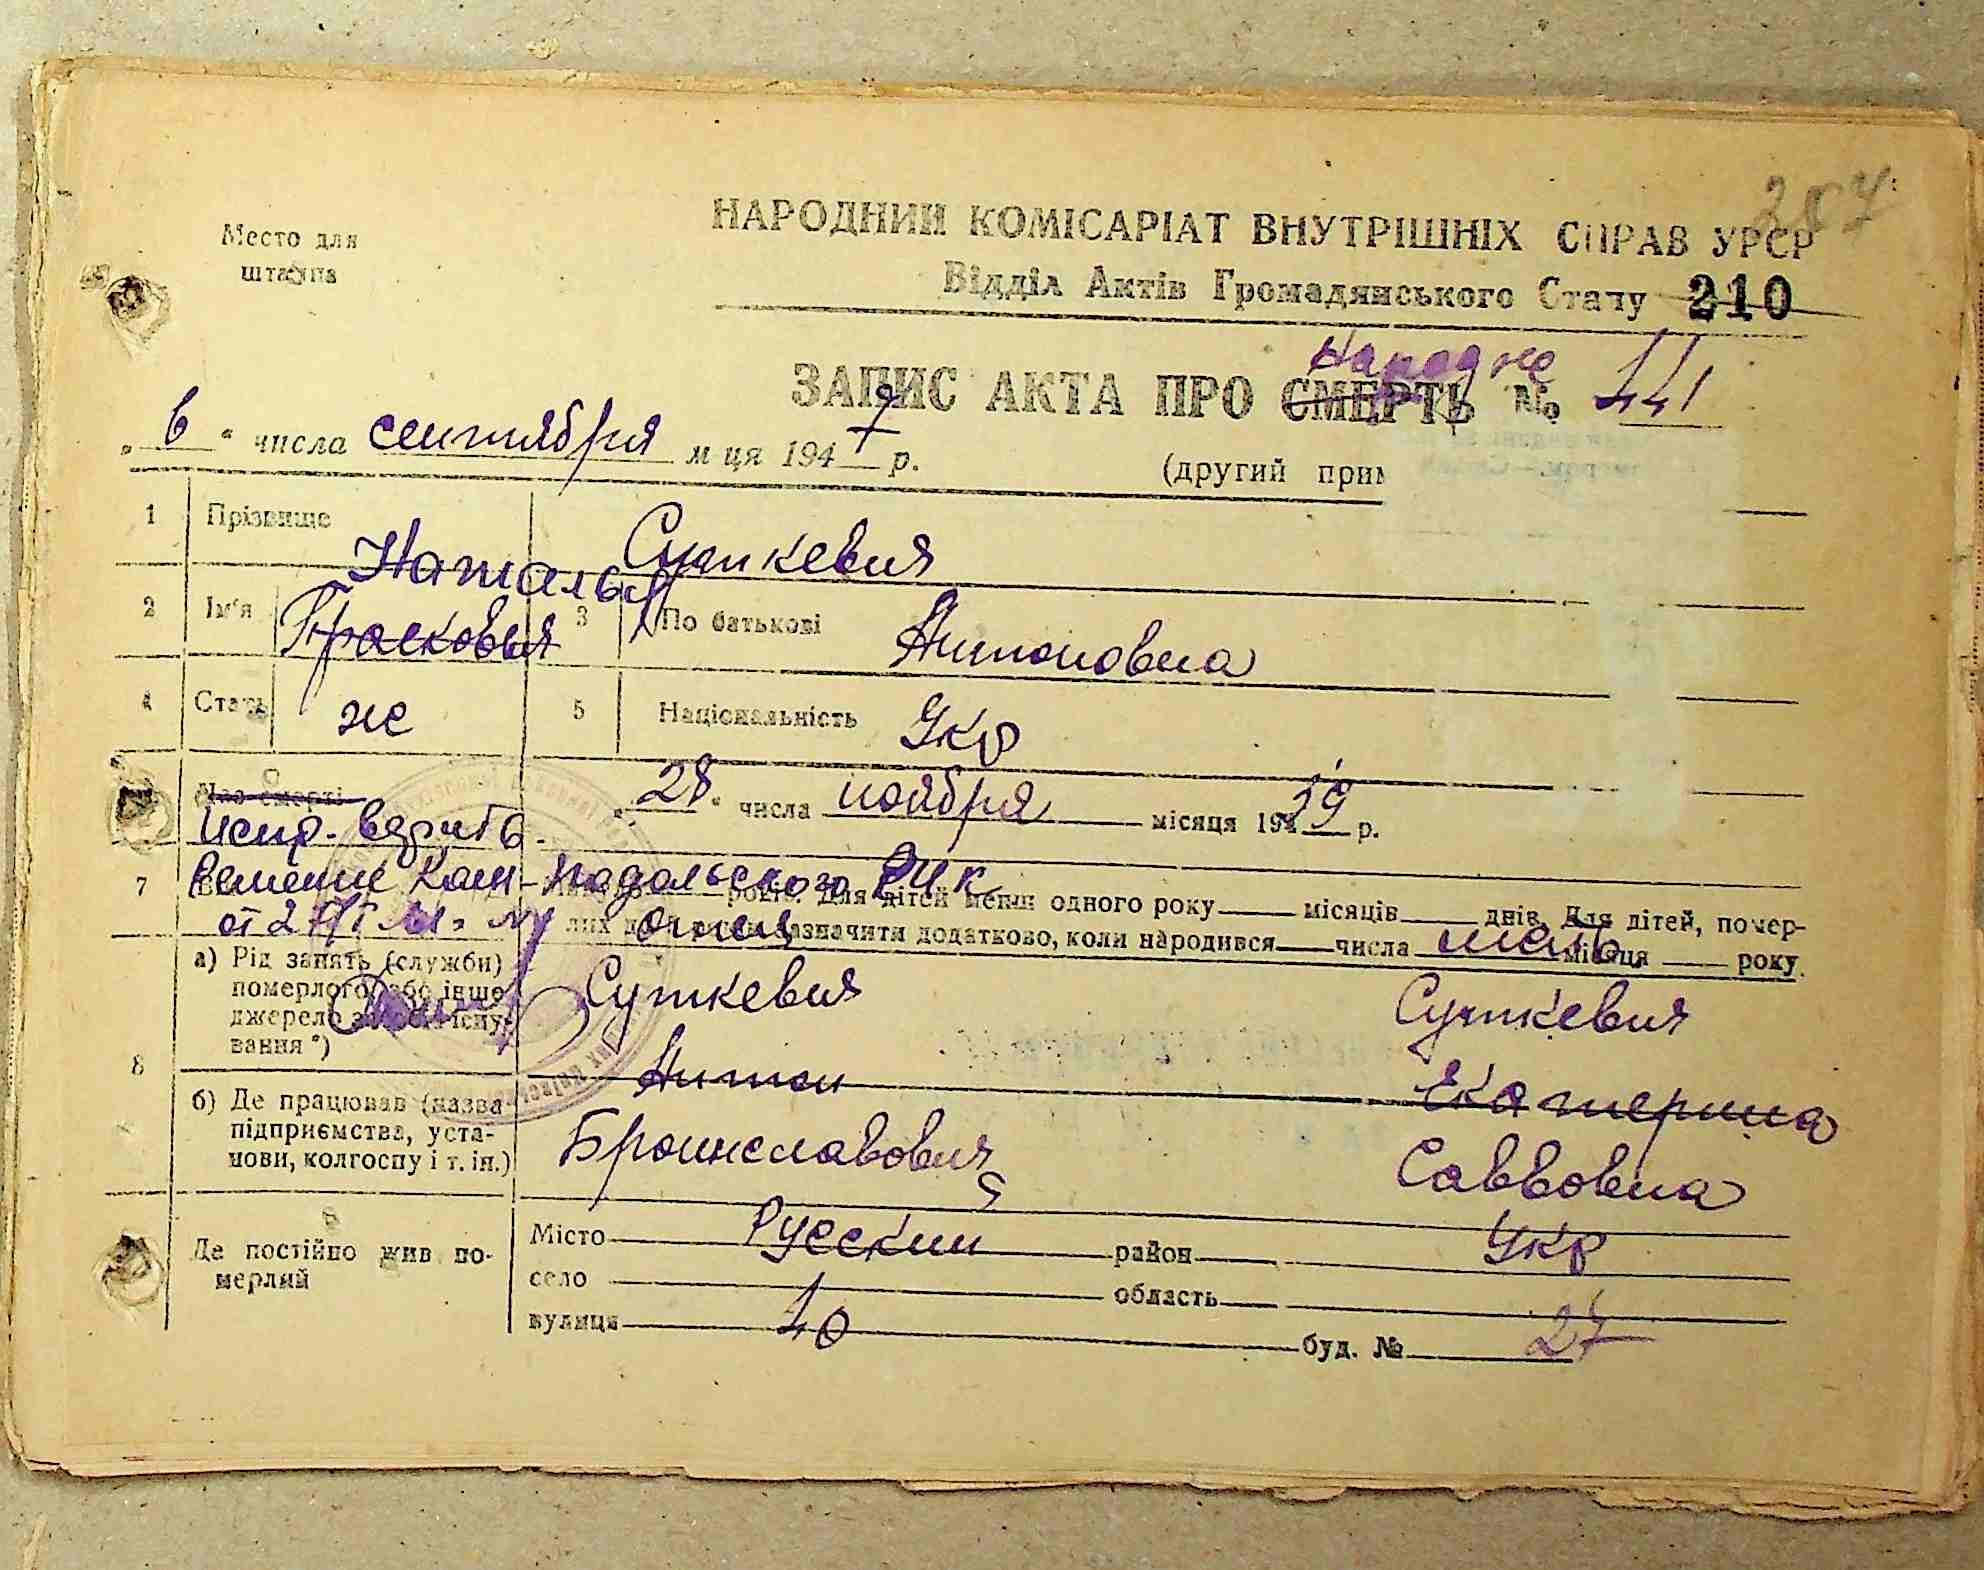 287
Место для
штампа
НАРОДНИЙ КОМІСАРІАТ ВНУТРІШНІХ СПРАВ УРСР
Відділ Актів Громадянського Стану 210
ЗАПИС АКТА ПРО СМЕРТЬ № 441
„6“ числа сентября м-ця 1947 р.
(другий прим
1 Прізвище Суткевич
Наталья
2 Ім'я Прасковья 3 По батькові Антоновна
4 Стать ж 5 Національність Укр
Час смерті „28“ числа ноября місяця 1939 р.
испр. верить
7 решение Кам-Подольского РИК
років. Для дітей менш одного року місяців днів. Для дітей, помер-
зазначити додатково, коли народився числа місяця року
отец мать
8 а) Рід занять (служби)
померлого або інше
джерело існу-
вання *)
Суткевич Суткевич
Антон Екатерина
б) Де працював (назва
підприємства, уста-
нови, колгоспу і т. ін.)
Брониславович Саввовна
Де постійно жив по-
мерлий
Місто Русский район Укр
село область
вулиця 40 буд. № 27